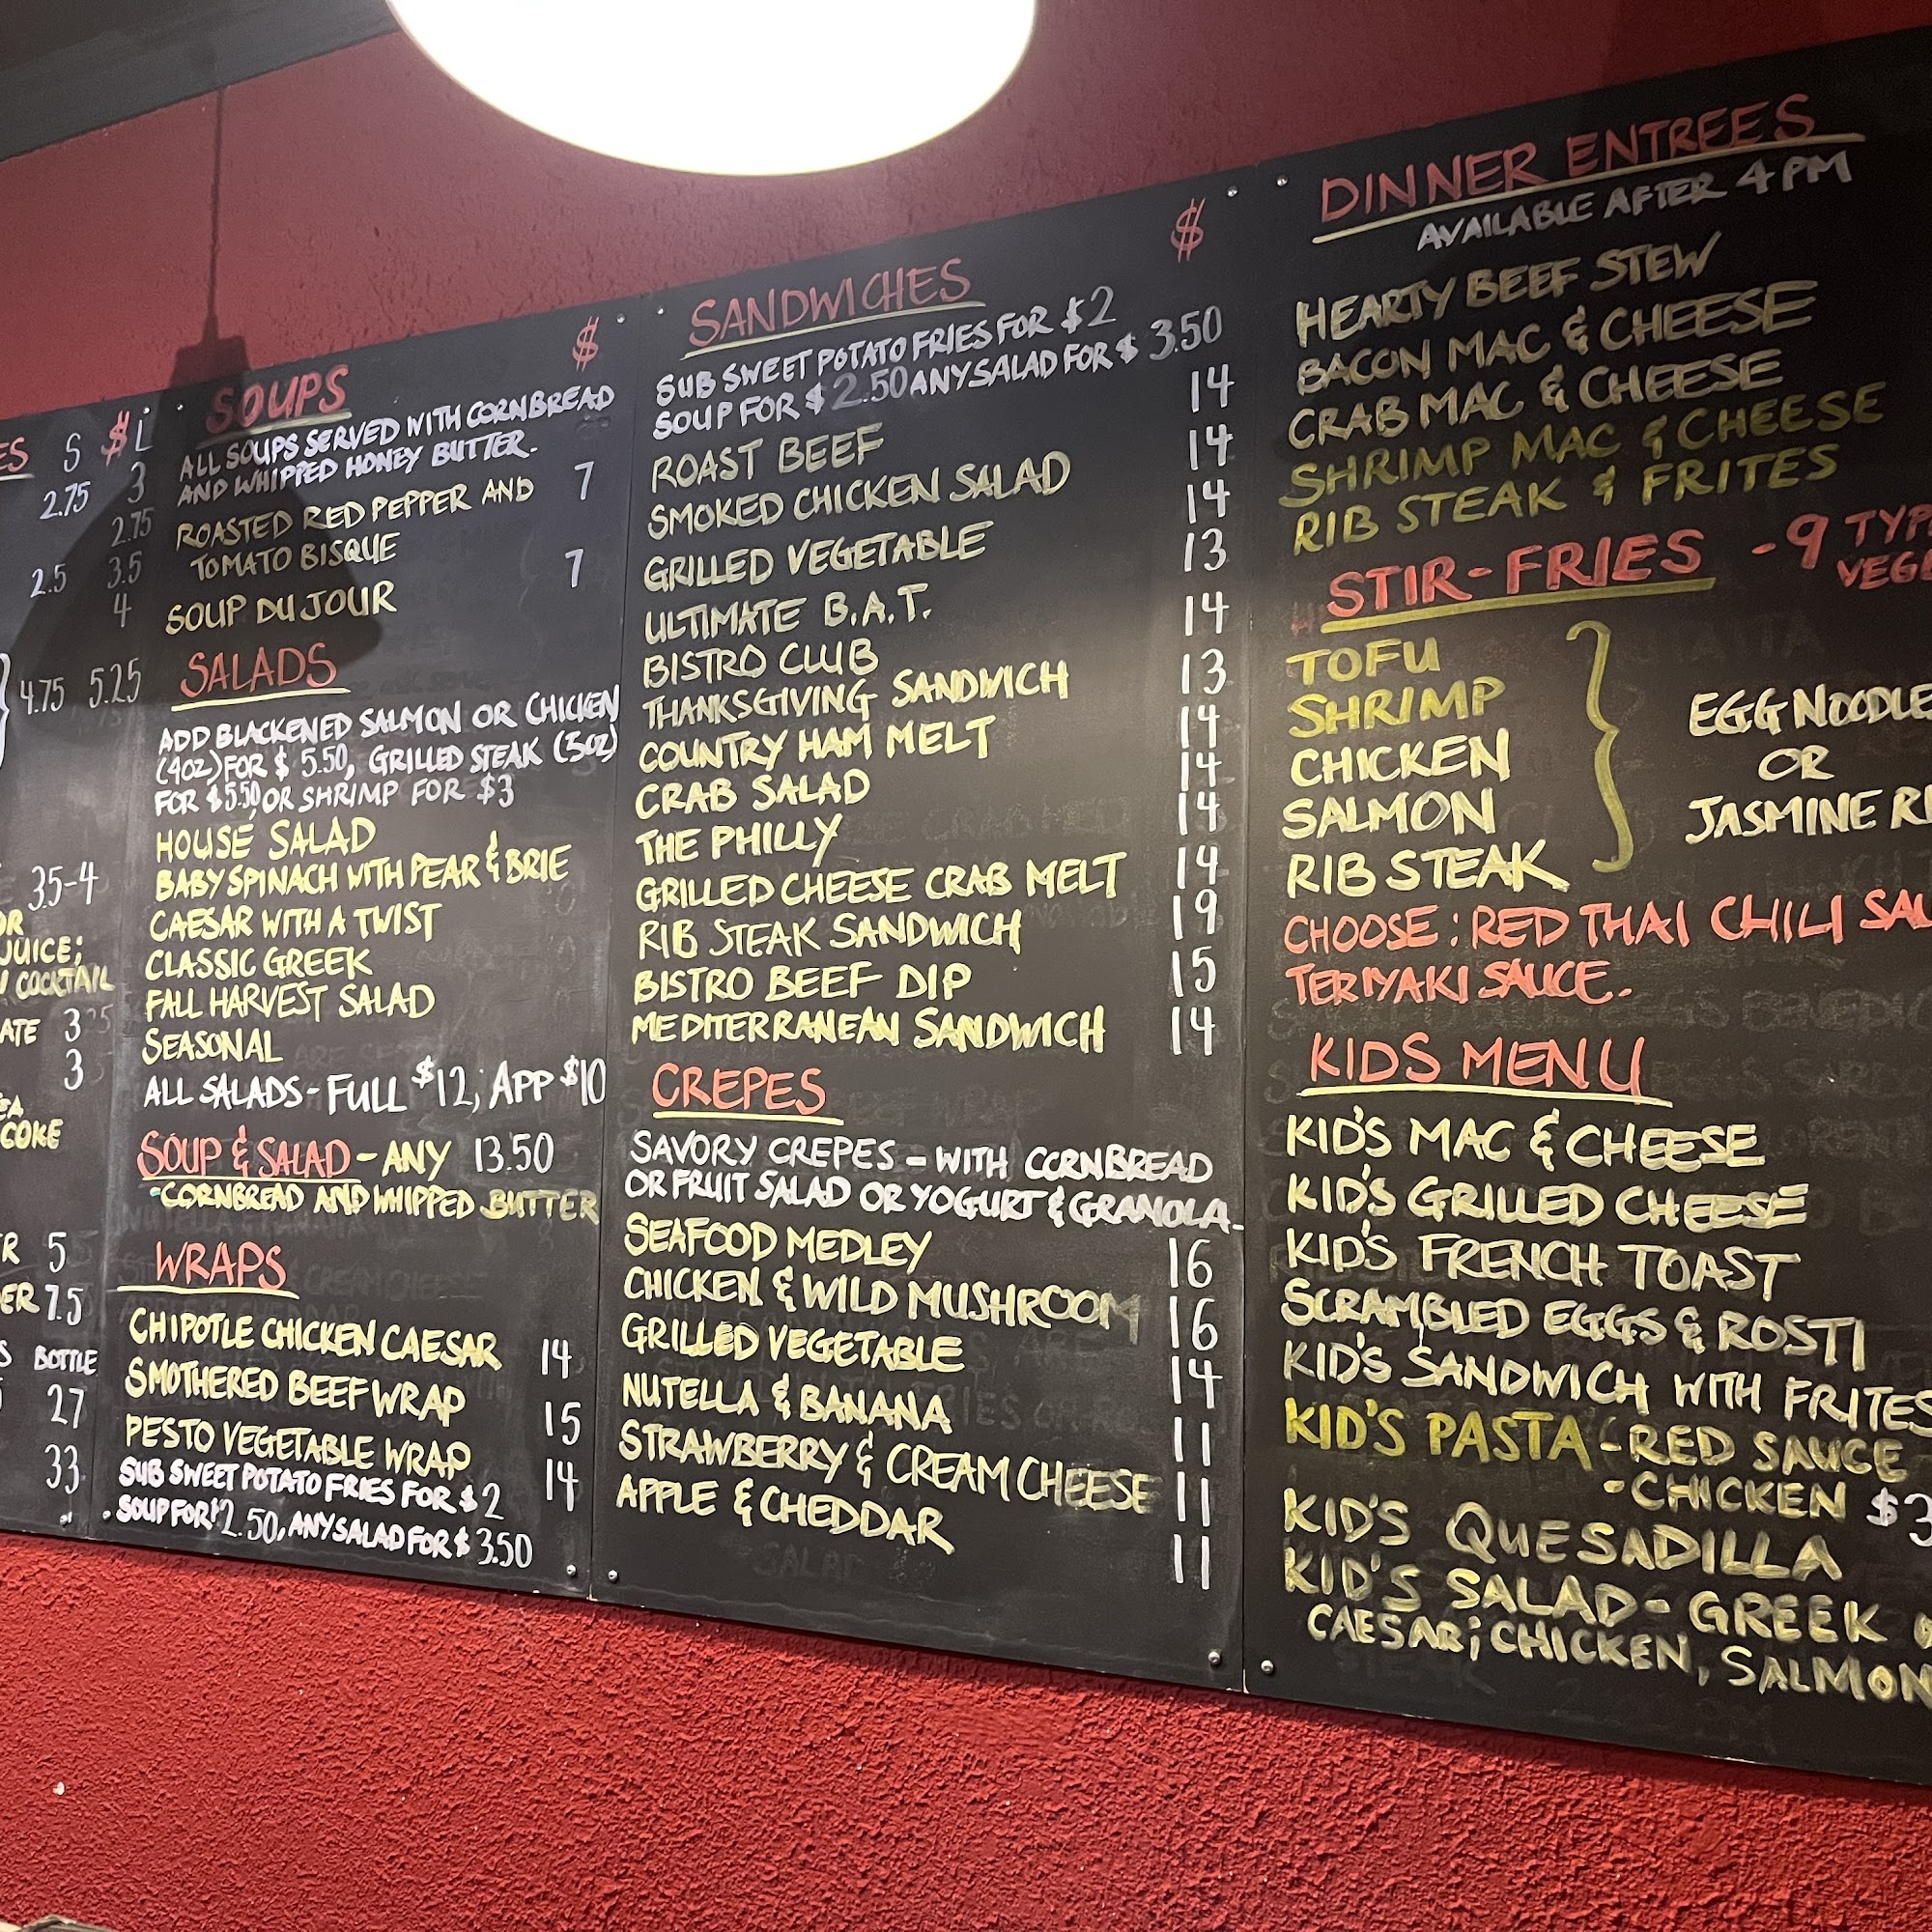 ES S $ L
2.75 3
2.75
2.5 3.5
4
4.75 5.25
3.5-4
OR
JUICE;
COCKTAIL
ATE 3
3
COKE
R 5
ER 7.5
S BOTTLE
27
33
SOUPS $
ALL SOUPS SERVED WITH CORNBREAD
AND WHIPPED HONEY BUTTER.
ROASTED RED PEPPER AND 7
TOMATO BISQUE
SOUP DU JOUR 7
SALADS
ADD BLACKENED SALMON OR CHICKEN
(4OZ) FOR $ 5.50, GRILLED STEAK (5OZ)
FOR $5.50, OR SHRIMP FOR $3
HOUSE SALAD
BABY SPINACH WITH PEAR & BRIE
CAESAR WITH A TWIST
CLASSIC GREEK
FALL HARVEST SALAD
SEASONAL
ALL SALADS - FULL $12; APP $10
SOUP & SALAD - ANY 13.50
- CORNBREAD AND WHIPPED BUTTER
WRAPS
CHIPOTLE CHICKEN CAESAR 14
SMOTHERED BEEF WRAP 15
PESTO VEGETABLE WRAP 14
SUB SWEET POTATO FRIES FOR $2
SOUP FOR $2.50, ANY SALAD FOR $3.50
SANDWICHES $
SUB SWEET POTATO FRIES FOR $2
SOUP FOR $2.50 ANY SALAD FOR $3.50
ROAST BEEF 14
SMOKED CHICKEN SALAD 14
GRILLED VEGETABLE 14
ULTIMATE B.A.T. 13
BISTRO CLUB 14
THANKSGIVING SANDWICH 13
COUNTRY HAM MELT 14
CRAB SALAD 14
THE PHILLY 14
GRILLED CHEESE CRAB MELT 14
RIB STEAK SANDWICH 19
BISTRO BEEF DIP 15
MEDITERRANEAN SANDWICH 14
CREPES
SAVORY CREPES - WITH CORNBREAD
OR FRUIT SALAD OR YOGURT & GRANOLA.
SEAFOOD MEDLEY 16
CHICKEN & WILD MUSHROOM 16
GRILLED VEGETABLE 14
NUTELLA & BANANA 11
STRAWBERRY & CREAM CHEESE 11
APPLE & CHEDDAR 11
DINNER ENTREES
AVAILABLE AFTER 4 PM
HEARTY BEEF STEW
BACON MAC & CHEESE
CRAB MAC & CHEESE
SHRIMP MAC & CHEESE
RIB STEAK & FRITES
STIR-FRIES - 9 TYP
VEGE
TOFU
SHRIMP
CHICKEN
SALMON
RIB STEAK
EGG NOODLE
OR
JASMINE RI
CHOOSE: RED THAI CHILI SAU
TERIYAKI SAUCE.
KIDS MENU
KID'S MAC & CHEESE
KID'S GRILLED CHEESE
KID'S FRENCH TOAST
SCRAMBLED EGGS & ROSTI
KID'S SANDWICH WITH FRITES
KID'S PASTA - RED SAUCE
- CHICKEN $3
KID'S QUESADILLA
KID'S SALAD - GREEK
CAESAR; CHICKEN, SALMON